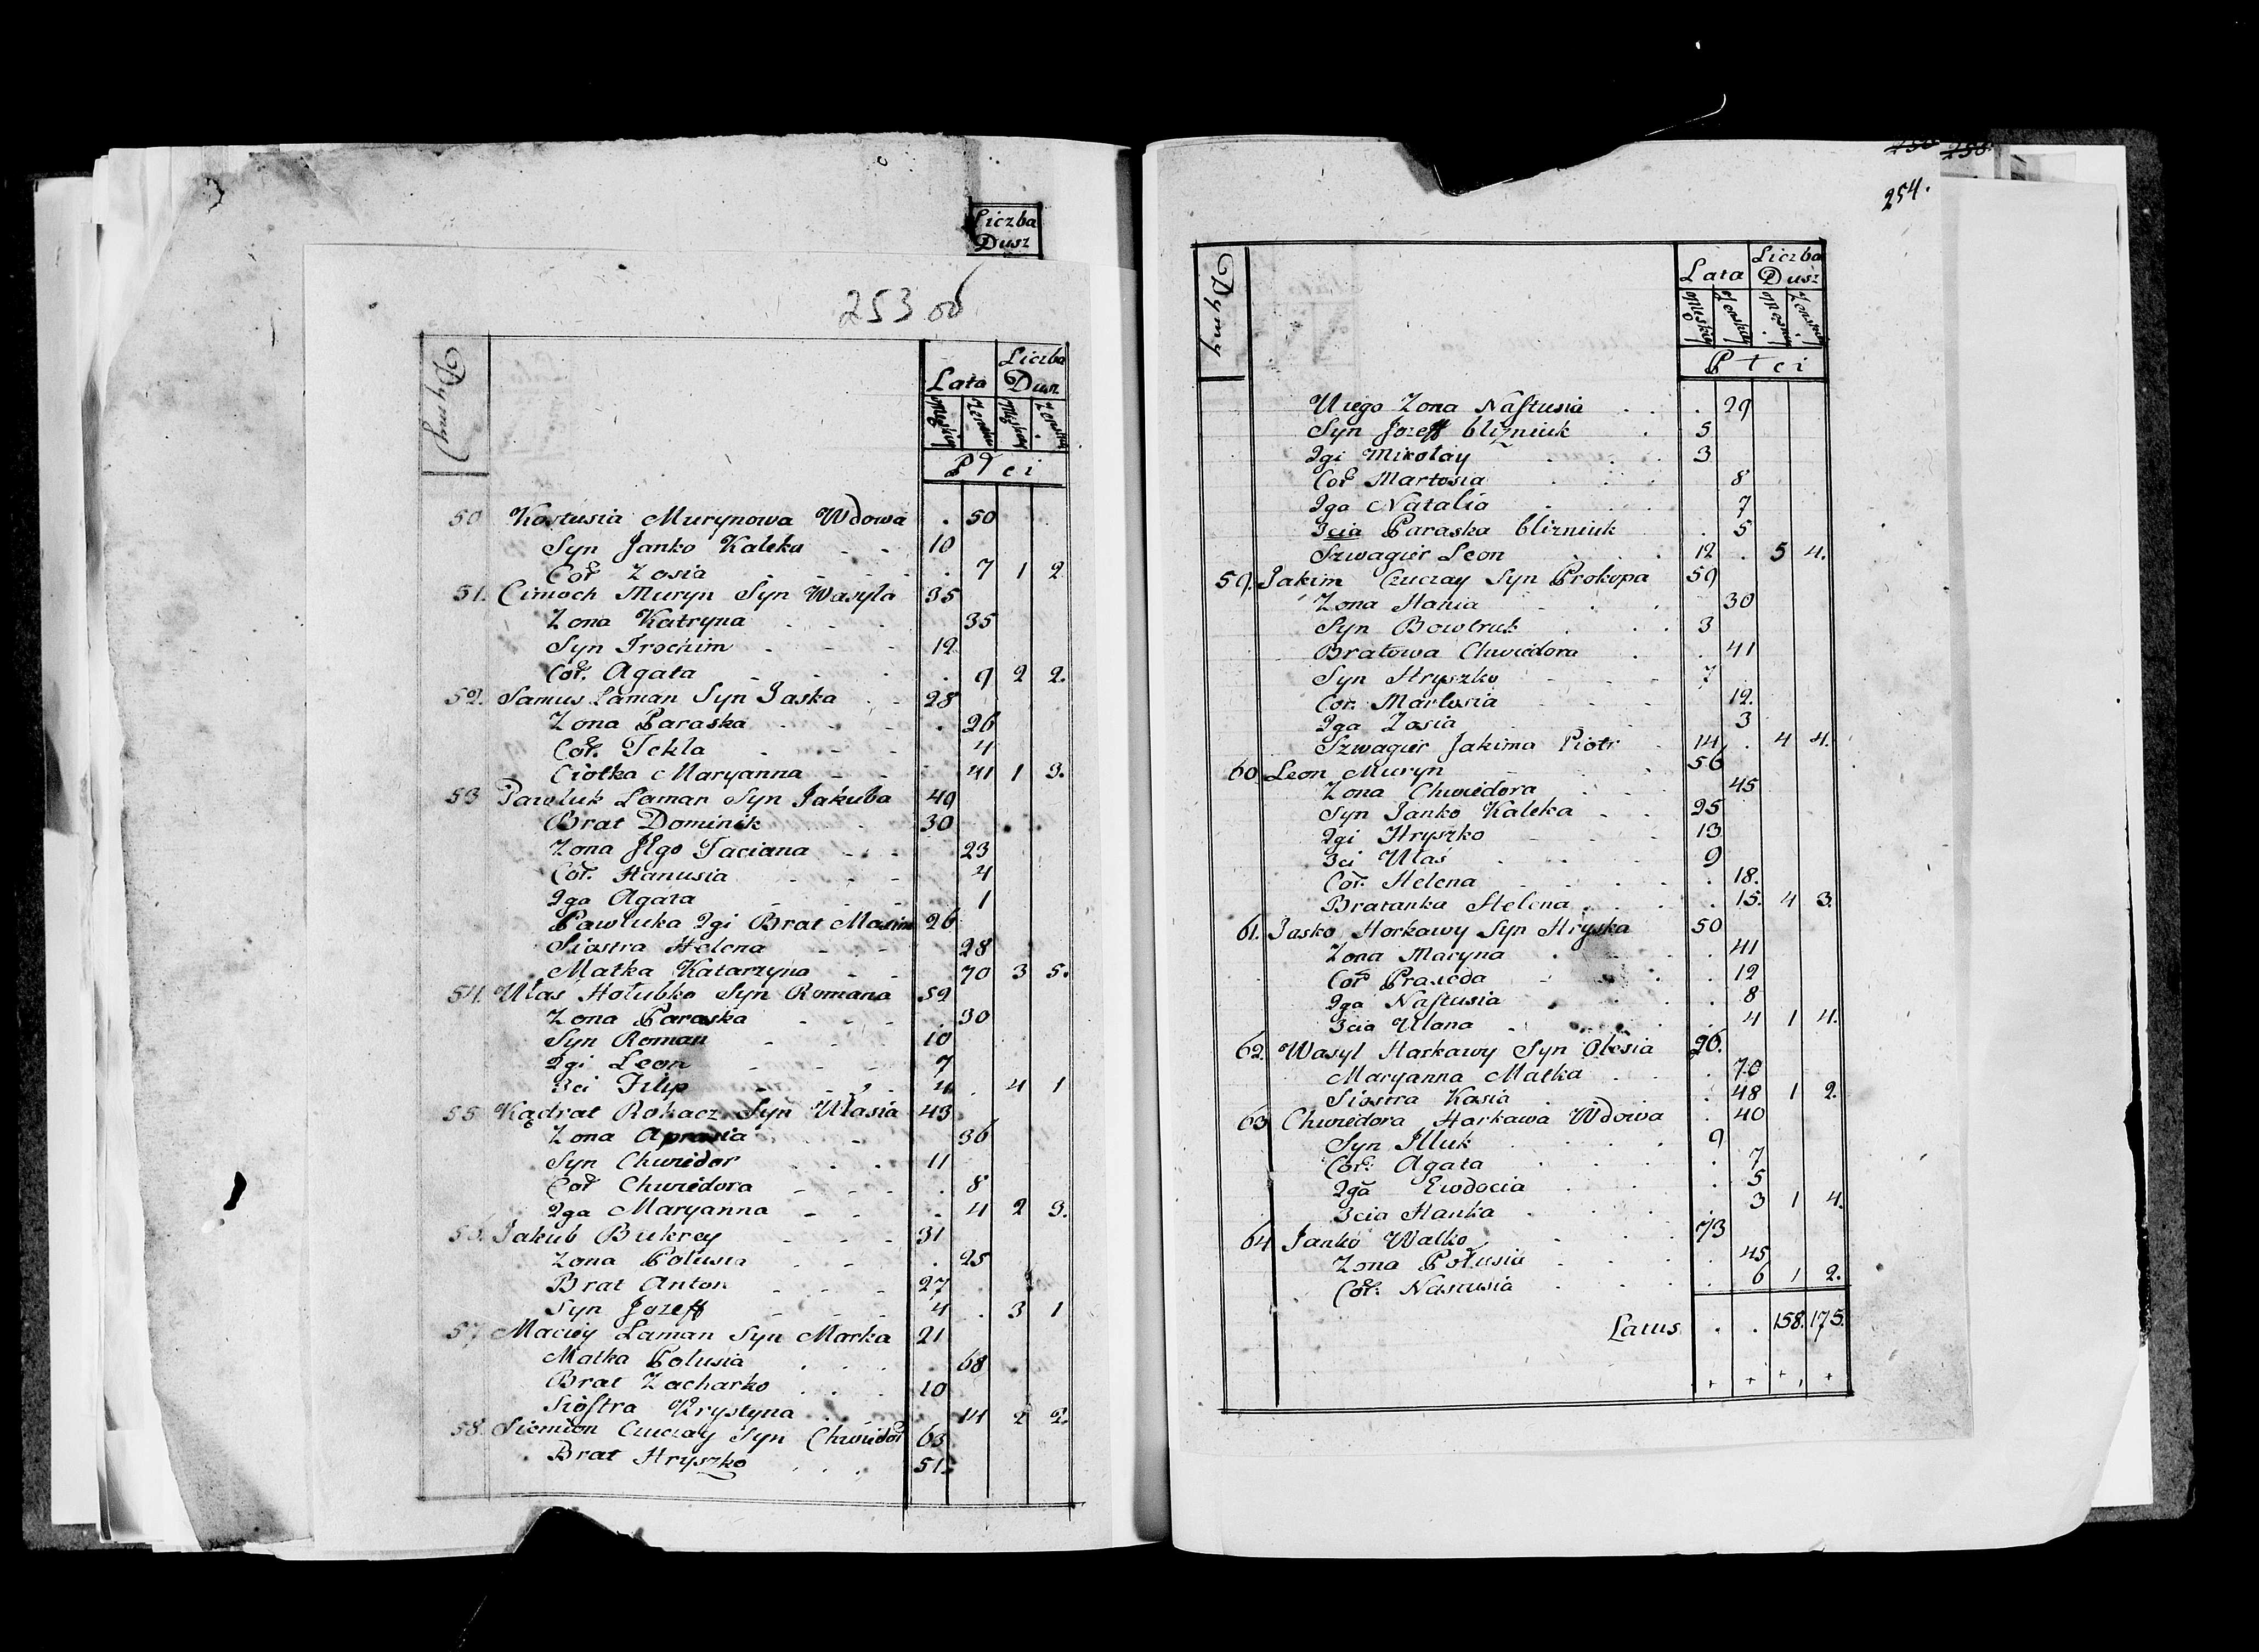 Liczba
Dusz
253 об
Dymy
Lata Liczba Dusz
Męskiey Żeńskiey Męskiey Żeńskiey
Płci
50 Kostusia Murynowa Wdowa . 50
Syn Janko Kaleka - - 10
Cór. Zosia . 7 1 2
51. Cimoch Muryn Syn Wasyla 35
Zona Katryna 35
Syn Trochim 12
Cór. Agata . 9 2 2.
52. Samus Laman Syn Jaska 28
Zona Paraska . 26
Cór. Tekla 4
Ciotka Maryanna 41 1 3.
53 Pawluk Laman Syn Jakuba 49
Brat Dominik 30
Zona Jlgo Taciana 23
Cór. Hanusia 4
2ga Agata 1
Pawluka 2gi Brat Maxim 26
Siostra Helena 28
Matka Katarzyna 70 3 5.
54. Ułas Hołubko Syn Romana 52
Zona Paraska . 30
Syn Roman 10
2gi Leon 7
3ci Filip 4 . 4 1
55 Kądrat Rohacz Syn Ułasia 43
Zona Aprasia 36
Syn Chwiedor 11
Cór Chwiedora . 8
2ga Maryanna . 4 2 3.
56. Jakub Bukrey 31
Zona Połusia . 25
Brat Anton 27
Syn Jozeff 4 . 3 1
57. Maciey Laman Syn Marka 21
Matka Połusia . 68
Brat Zacharko 10
Siostra Krystyna 14 2 2.
58. Siemion Czuczay Syn Chwiedor 63
Brat Hryszko 51.
250 258
254.
Dymy
Lata Liczba Dusz
Męskiey Żeńskiey Męskiey Żeńskiey
Płci
Uiego Zona Nastusia . 29
Syn Jozeff bliźniuk 5
2gi Mikołay 3
Cór Martosia 8
2ga Natalia 7
3cia Paraska bliźniuk . 5
Szwagier Leon 12 . 5 4.
59. Jakim Czuczay Syn Prokopa 59
Zona Hania 30
Syn Bowtruk 3
Bratowa Chwiedora . 41
Syn Hryszko 7
Cór. Martosia 12.
2ga Zosia 3
Szwagier Jakima Piotr 14 . 4 4.
60 Leon Muryn 56
Zona Chwiedora 45
Syn Janko Kaleka 25
2gi Hryszko 13
3ci Ułas 9
Cór. Helena . 18.
Bratanka Helena . 15. 4 3.
61. Jasko Horkawy Syn Hryska 50
Zona Maryna . 41
Cór Praxeda . 12
2ga Nastusia . 8
3cia Ulana . 4 1 4.
62. Wasyl Harkawy Syn Olesia 26.
Maryanna Matka . 70
Siostra Kasia . 48 1 2.
63 Chwiedora Harkawa Wdowa . 40
Syn Illuk 9
Cór. Agata . 7
2ga Ewdocia . 5
3cia Hanka . 3 1 4.
64 Janko Walko 73
Zona Połusia . 45
Cór. Nastusia . 6 1 2.
Latus . . 158. 175.